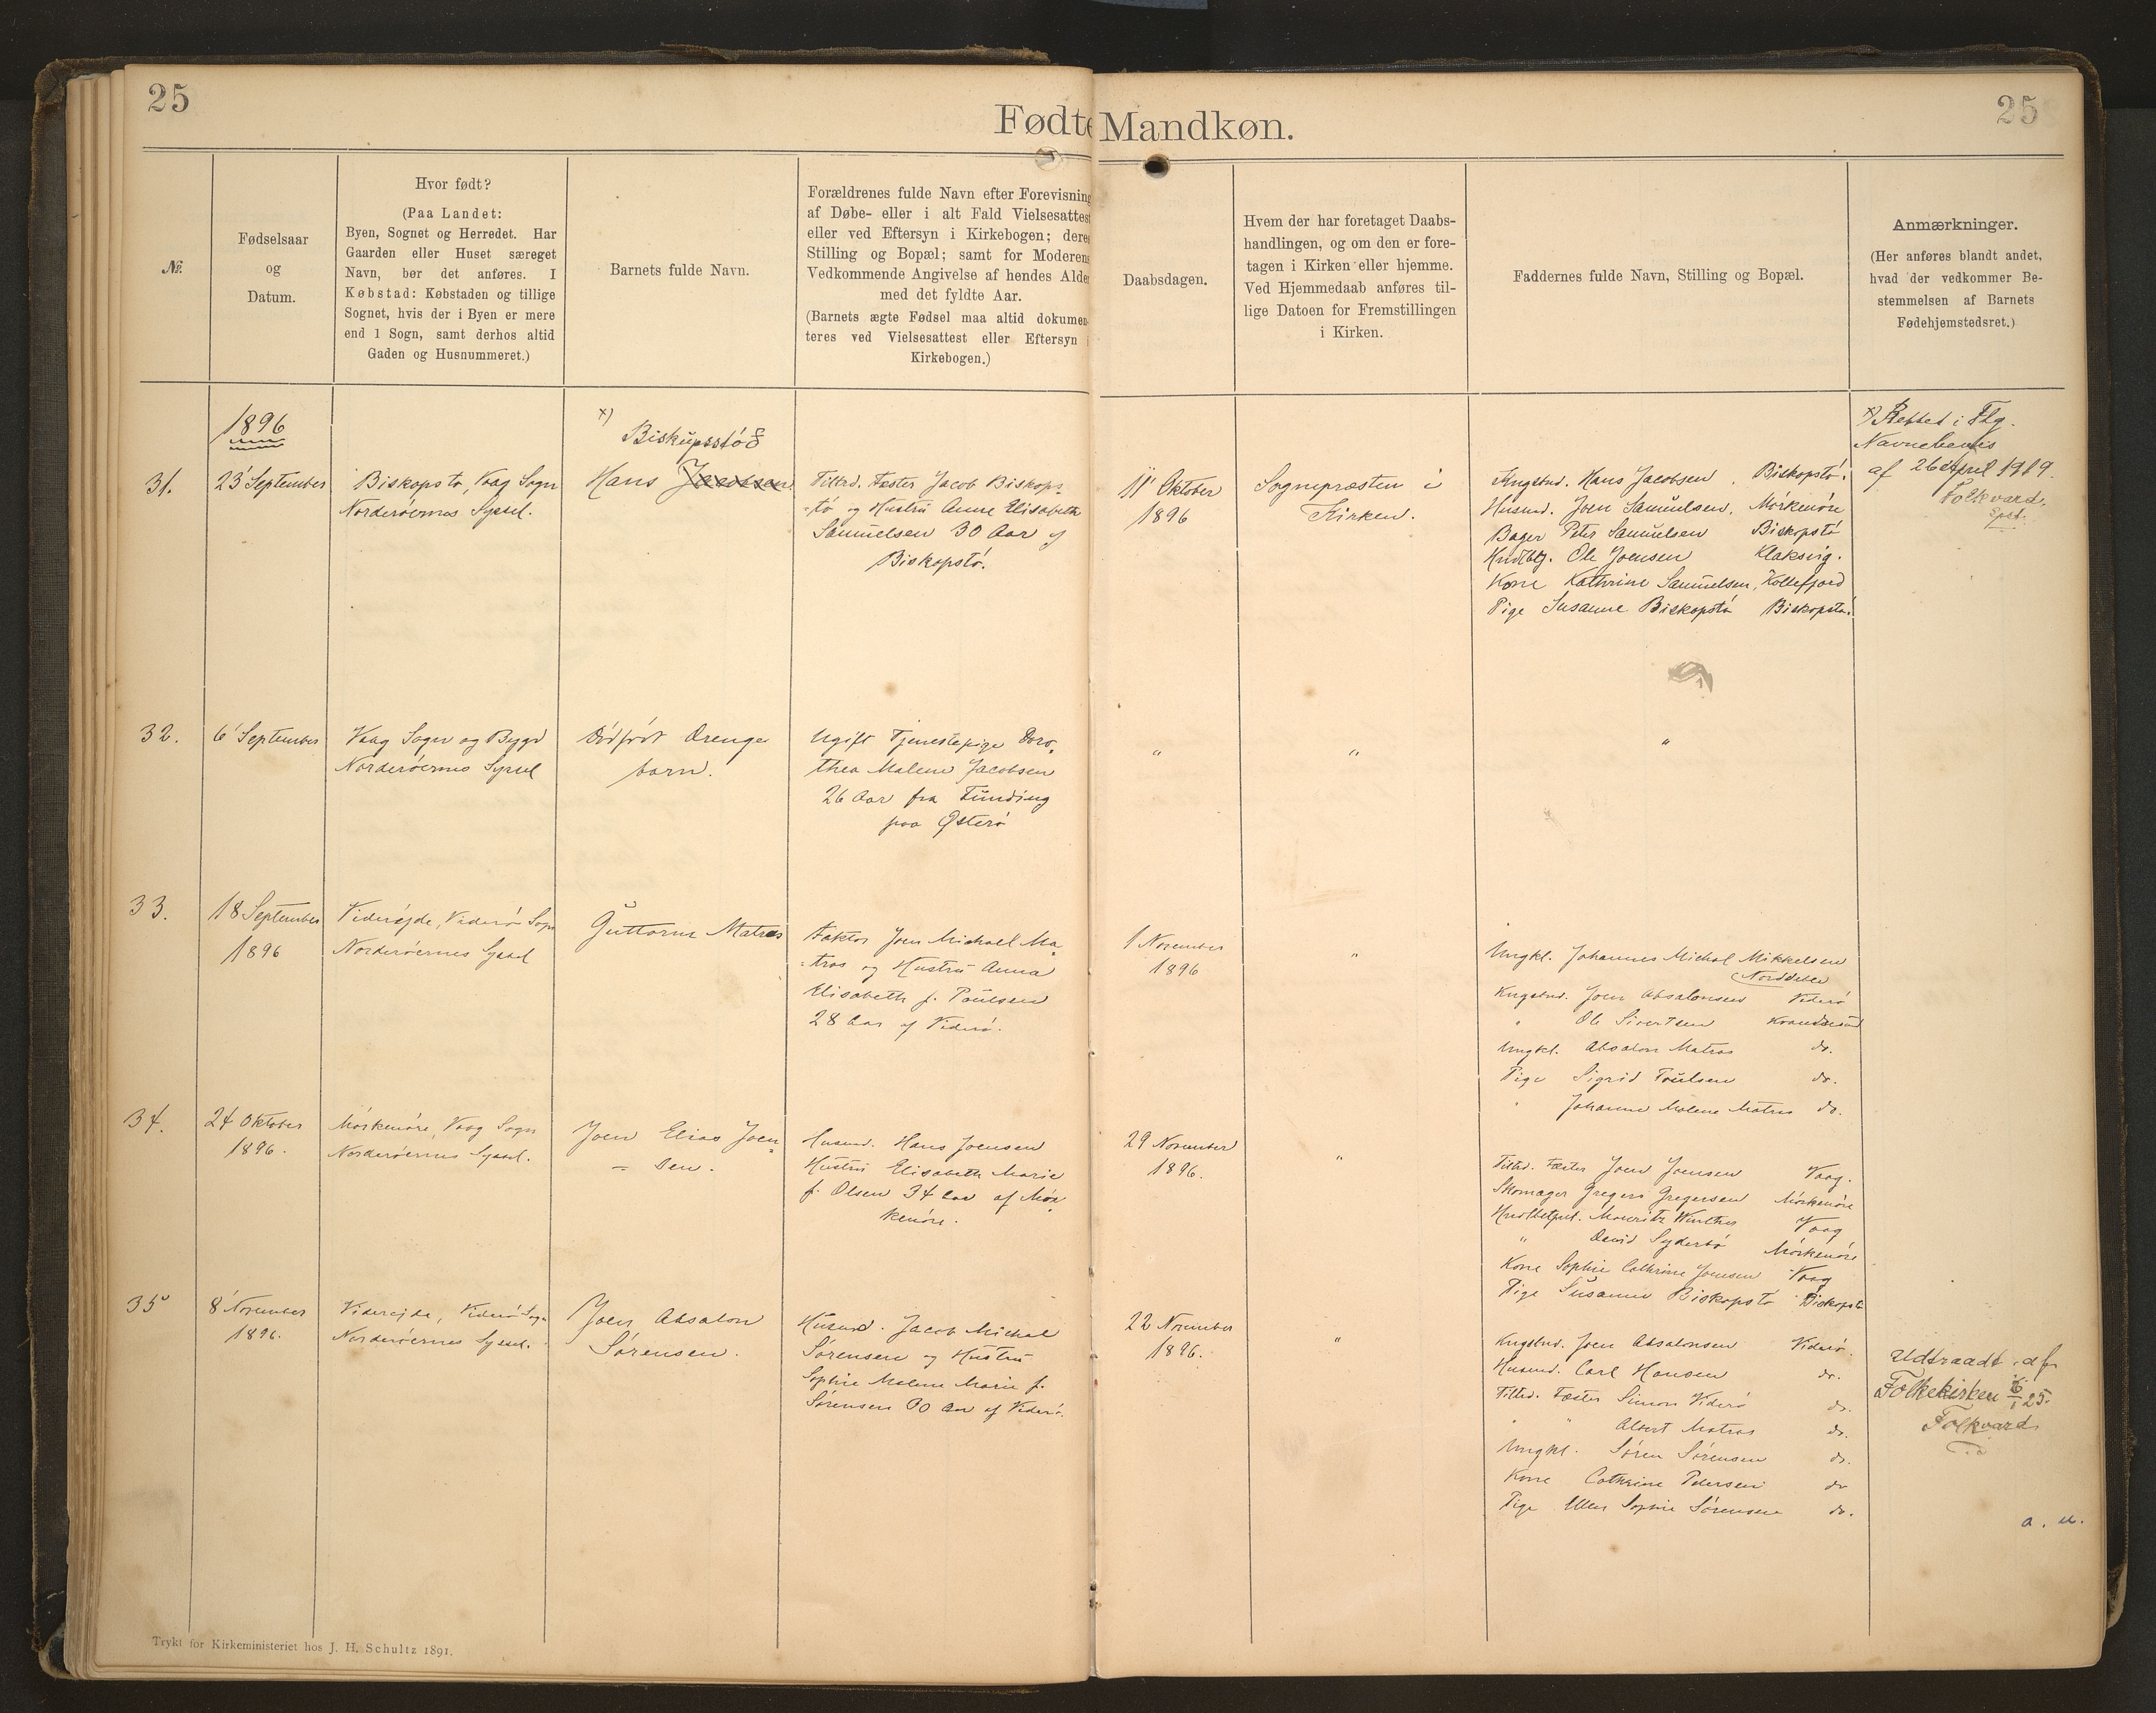 25
Fødte Mandkøn.
25
№.
Fødselsaar
og
Datum.
Hvor født?
(Paa Landet:
Byen, Sognet og Herredet. Har
Gaarden eller Huset særeget
Navn, bør det anføres. I
Købstad: Købstaden og tillige
Sognet, hvis der i Byen er mere
end 1 Sogn, samt derhos altid
Gaden og Husnummeret.)
Barnets fulde Navn.
Forældrenes fulde Navn efter Forevisning
af Døbe- eller i alt Fald Vielsesattest
eller ved Eftersyn i Kirkebogen; deres
Stilling og Bopæl; samt for Moderens
Vedkommende Angivelse af hendes Alder
med det fyldte Aar.
(Barnets ægte Fødsel maa altid dokumen-
teres ved Vielsesattest eller Eftersyn i
Kirkebogen.)
Daabsdagen.
Hvem der har foretaget Daabs-
handlingen, og om den er fore-
tagen i Kirken eller hjemme.
Ved Hjemmedaab anføres til-
lige Datoen for Fremstillingen
i Kirken.
Faddernes fulde Navn, Stilling og Bopæl.
Anmærkninger.
(Her anføres blandt andet,
hvad der vedkommer Be-
stemmelsen af Barnets
Fødehjemstedsret.)
1896
31.
23 September
Biskopstø, Vaag Sogn
Norderöernes Syssel.
x)
Biskupsstóð
Hans Jacobsen
Tiltrd. Fæster Jacob Biskops-
-tø og Hustru Anne Elisabeth
Samuelsen 30 Aar af
Biskopstö.
11 Oktober
1896
Sognepræsten i
Kirken.
Kngsbnd. Hans Jacobsen. Biskopstö.
Husmd. Joen Samuelsen. Mörkenöre
Bager Peter Samuelsen Biskopstö
Hndlbtj. Ole Joensen Klaksvig.
Kone Kathrine Samuelsen, Kollefjord
Pige Susanne Biskopstö Biskopstö.
x) Rettet i Flg.
Navnebevis
af 26 April 1919.
Folkvard.
Spst.
32.
6 September
Vaag Sogn og Bygd
Norderöernes Syssel
Dödfödt Drenge
barn.
Ugift Tjenestepige Doro-
thea Malene Jacobsen
26 Aar fra Funding
paa Østerö
"
"
"
33.
18 September
1896
Videreide, Viderö Sogn
Norderöernes Syssel
Guttorm Matras
Faktor Joen Michael Ma-
-tras og Hustru Anna
Elisabeth f. Poulsen
28 Aar af Viderö.
1 November
1896
"
Ungkl. Johannes Michal Mikkelsen
Norddeble
Kngsbnd. Joen Absalonsen Viderö
" Ole Sivertsen Kvannesund
Ungkl. Absalon Matras do.
Pige Sigrid Poulsen do.
" Johanne Malene Matras do.
34.
24 Oktober
1896.
Mörkenöre, Vaag Sogn
Norderöernes Syssel.
Joen Elias Joen-
= sen.
Husmd. Hans Joensen
Hustru Elisabeth Marie
f. Olsen 34 Aar af Mör-
kenöre.
29 November
1896.
"
Tiltrd. Fæster Joen Joensen Vaag.
Skomager Gregers Gregersen Mörkenöre
Hndlbetjnt. Mouritz Winther Vaag
" David Syderbö Mörkenöre
Kone Sophie Cathrine Joensen Vaag
Pige Susanne Biskopstö Biskopstö
35
8 November
1896.
Videreide, Viderö Sogn
Norderöernes Syssel.
Joen Absalon
Sörensen.
Husmd. Jacob Michal
Sörensen og Hustru
Sophie Malene Marie f.
Sörensen 30 Aar af Viderö.
22 November
1896.
"
Kngsbnd. Joen Absalonsen Viderö.
Husmd. Carl Hansen do.
Tiltrd. Fæster Simon Viderö do.
" " Albert Matras do.
Ungkl. Sören Sörensen do.
Kone Cathrine Petersen do
Pige Ellen Sophie Sörensen do.
Udtraadt af
Folkekirken 6/1 25.
Folkvard
a. u.
Trykt for Kirkeministeriet hos J. H. Schultz 1891.